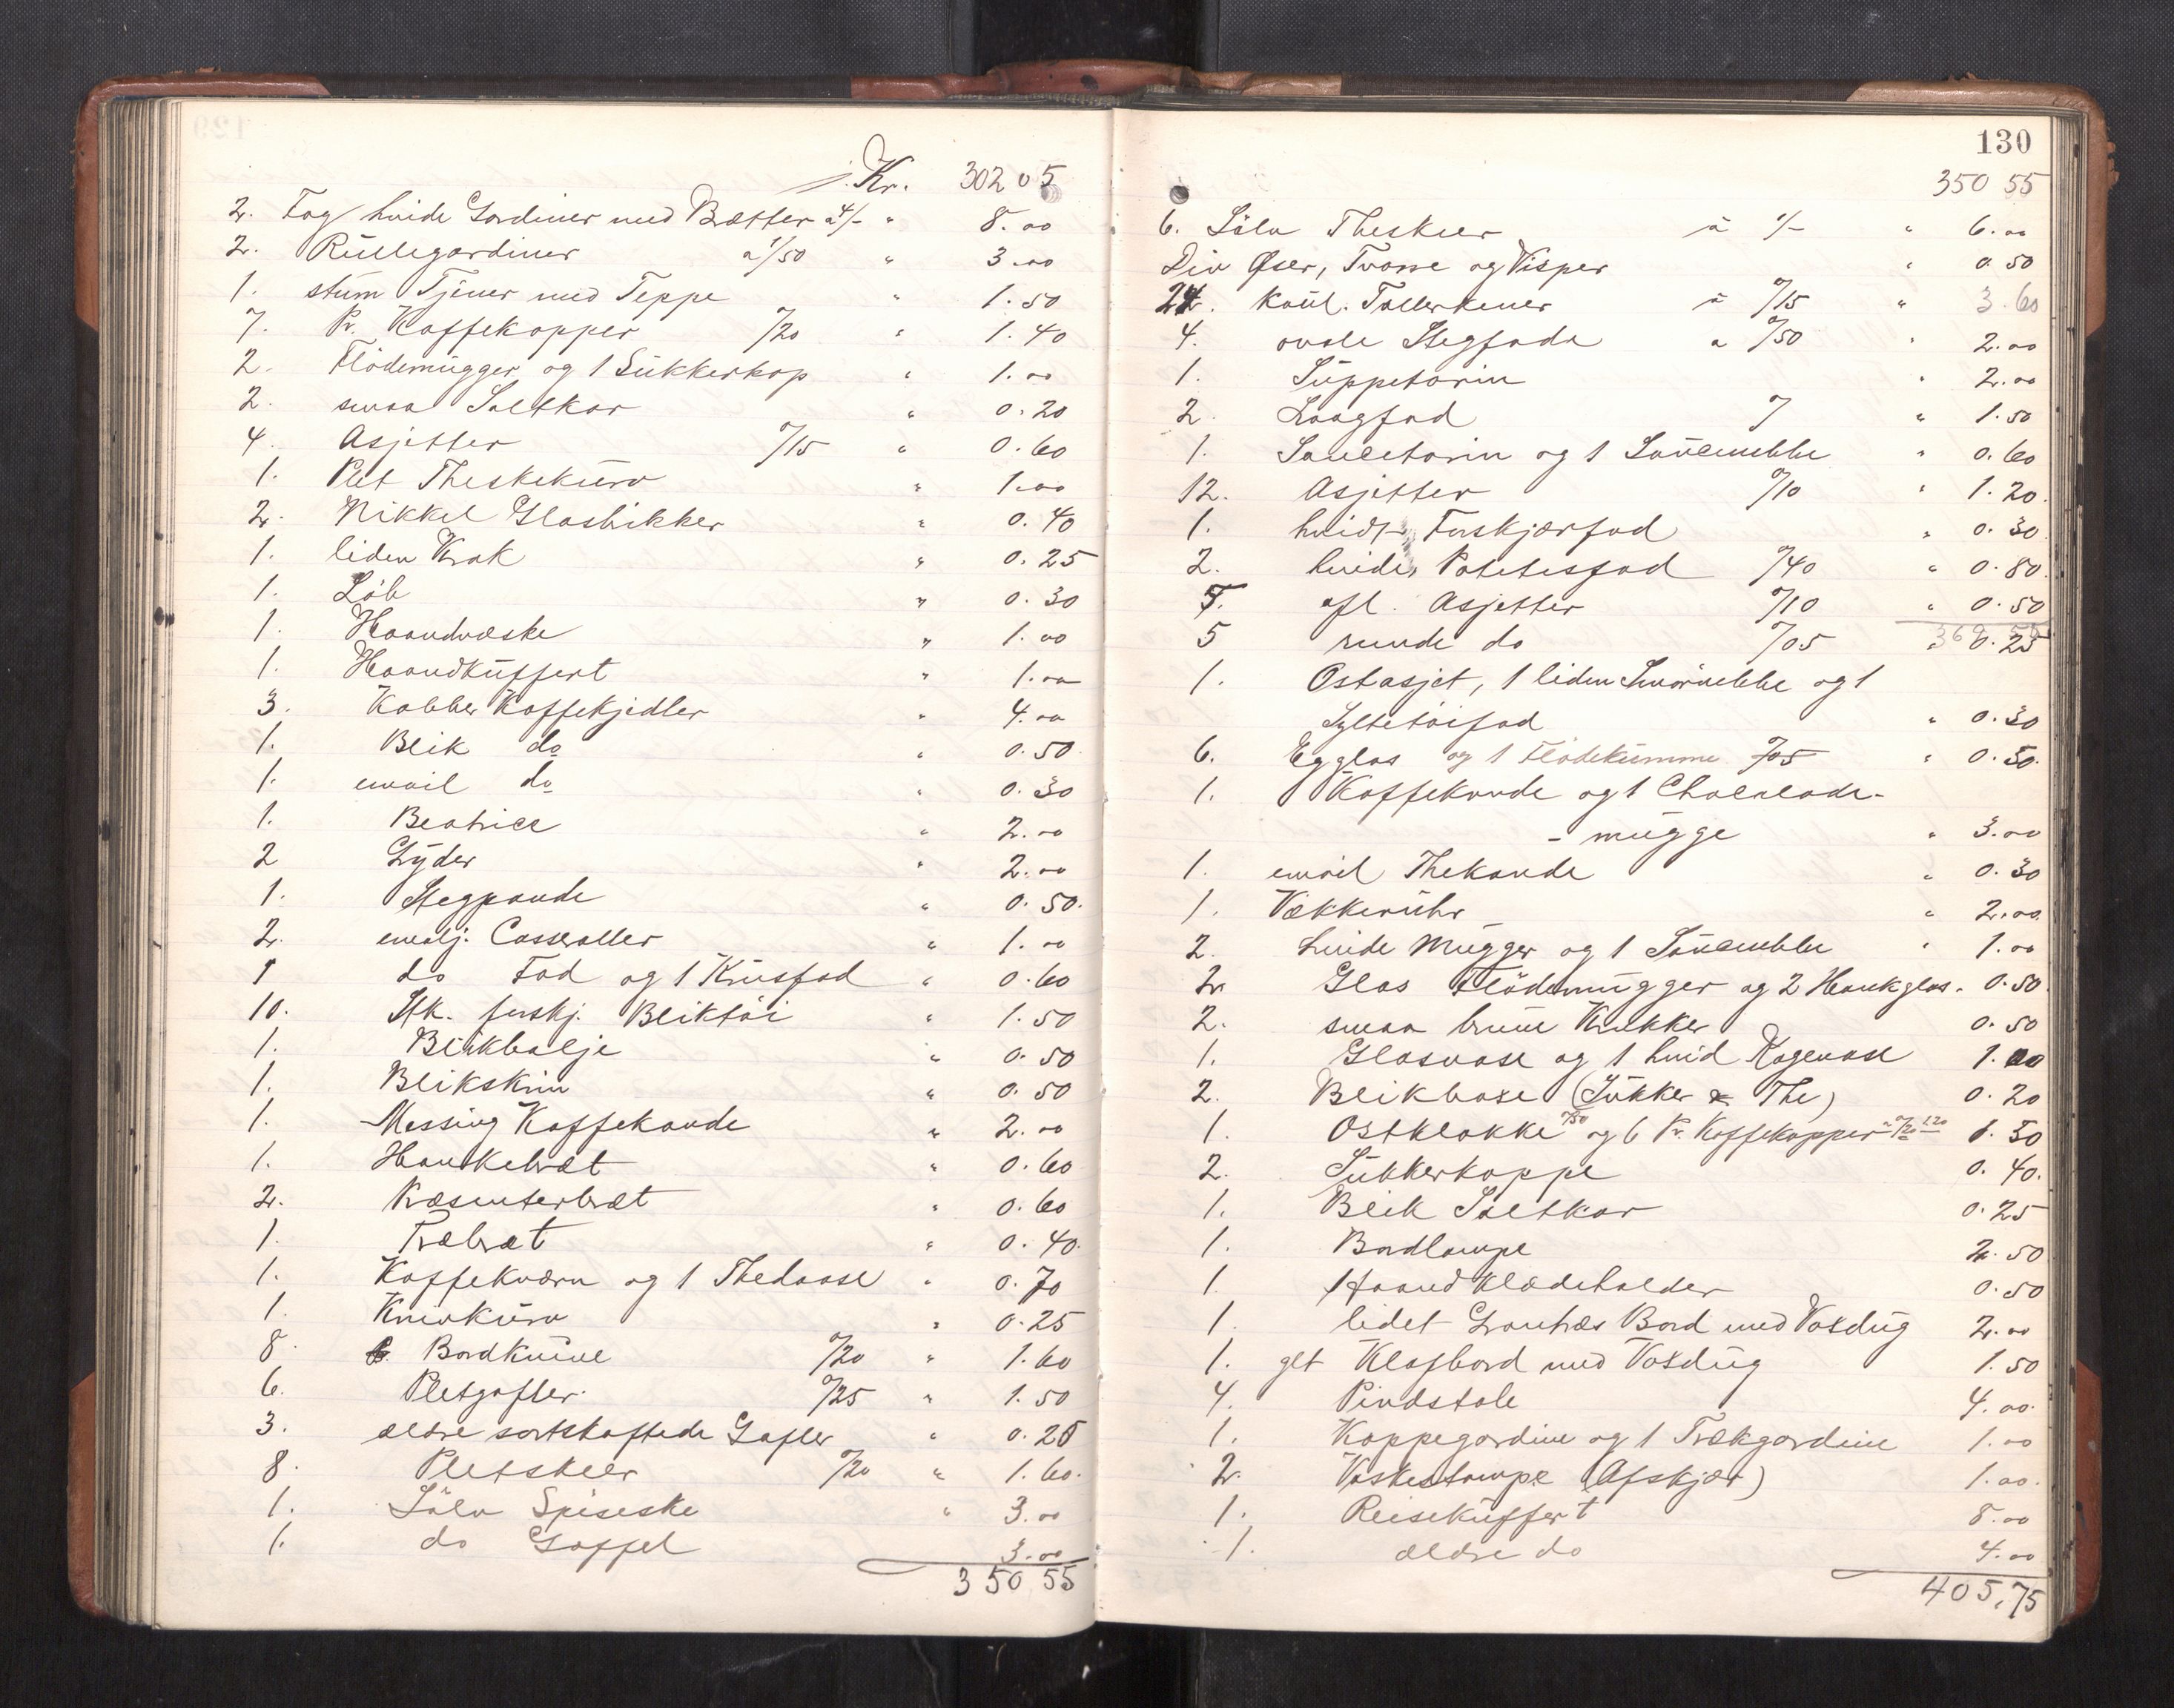 Kr. 302 05
2. Fag hvide Gardiner med Brætter a 4/- " 8.00
2. Rullegardiner a 1/50 " 3.00
1. stum Tjener med Teppe " 1.50
7. Pr. Kaffekopper 0/20 " 1.40
2. Flödemugger og 1 Sukkerkop " 1.00
2. smaa Saltkar " 0.20
4. Asjetter 0/15 " 0.60
1. Plet Theskekurv " 1.00
2. Nikkel Glasbikker " 0.40
1. liden Krak " 0.25
1. Löb " 0.30
1. Haandvæske " 1.00
1. Haandkuffert " 1.00
3. Kobber Kaffekjedler " 4.00
1. Blik do " 0.50
1. email do " 0.30
1. Beatrice " 2.00
2 Gryder " 2.00
1. Stegpande " 0.50
2. emalj. Casseroller " 1.00
1 do Fad og 1 Krusfad " 0.60
10. Stk. forskj. Bliktöi " 1.50
1. Blikbalje " 0.50
1. Blikskrin " 0.50
1. Messing Kaffekande " 2.00
1. Hankebræt " 0.60
2. Præsenterbræt " 0.60
1. Træbræt " 0.40
1. Kaffekværn og 1 Thedaase " 0.70
1. Knivkurv " 0.25
8. Bordknive 0/20 " 1.60
6. Pletgafler 0/25 " 1.50
3. ældre sortskaftede Gafler " 0.25
8. Pletskeer 0/20 " 1.60
1. Sölv Spiseske " 3.00
1. do Gaffel 3.00
350 55
130
350 55
6. Sölv Theskeer à 1/- " 6.00
Div Öser, Tvarre og Visper " 0.50
24. Koul. Tallerkener à 0/15 " 3.60
4. ovale Stegfade a 0/50 " 2.00
1. Suppeterin " 2.00
2. Laagfad " 1.50
1. Sauceterin og 1 Saucenebbe " 0.60
12. Asjetter 0/10 " 1.20
1. hvidt Forskjærfad " 0.30
2. hvide Potetesfad 0/40 " 0.80
5. afl. Asjetter 0/10 " 0.50
5 runde do 0/05 " 0.25
1. Ostasjet, 1 liden Smörnebbe og 1
Syltetöifad " 0.30
6. Egglas og 1 Flödekumme 0/05 " 0.50
1. Kaffekande og 1 Chocolade-
- mugge " 3.00
1. email Thekande " 0.30
1. Vækkeruhr " 2.00
2. hvide Mugger og 1 Saucenebbe " 1.00
2. Glas Flödemugger og 2 Hankglas. 0.50
2. smaa brune Krukker 0.50
1. Glasvase og 1 hvid Kagevase 1.00
2. Blikboxe (Sukker & The) 0.20
1. Ostklokke 0/50 og 6 Pr. Kaffekopper a 0/20 1.20 1.50
2. Sukkerkoppe 0.40
1. Blik Saltkar 0.25
1. Bordlampe 2.50
1. Haandklædeholder 0.50
1. lidet Grantræs Bord med Voxdug 2.00
1. glt Klafbord med Voxdug 1.50
4. Pindstole 4.00
1. Kappegardine og 1 Trækgardine 1.00
2. Vaskestampe (Afskjær) 1.00
1. Reisekuffert 8.00
1. ældre do 4.00
405,75